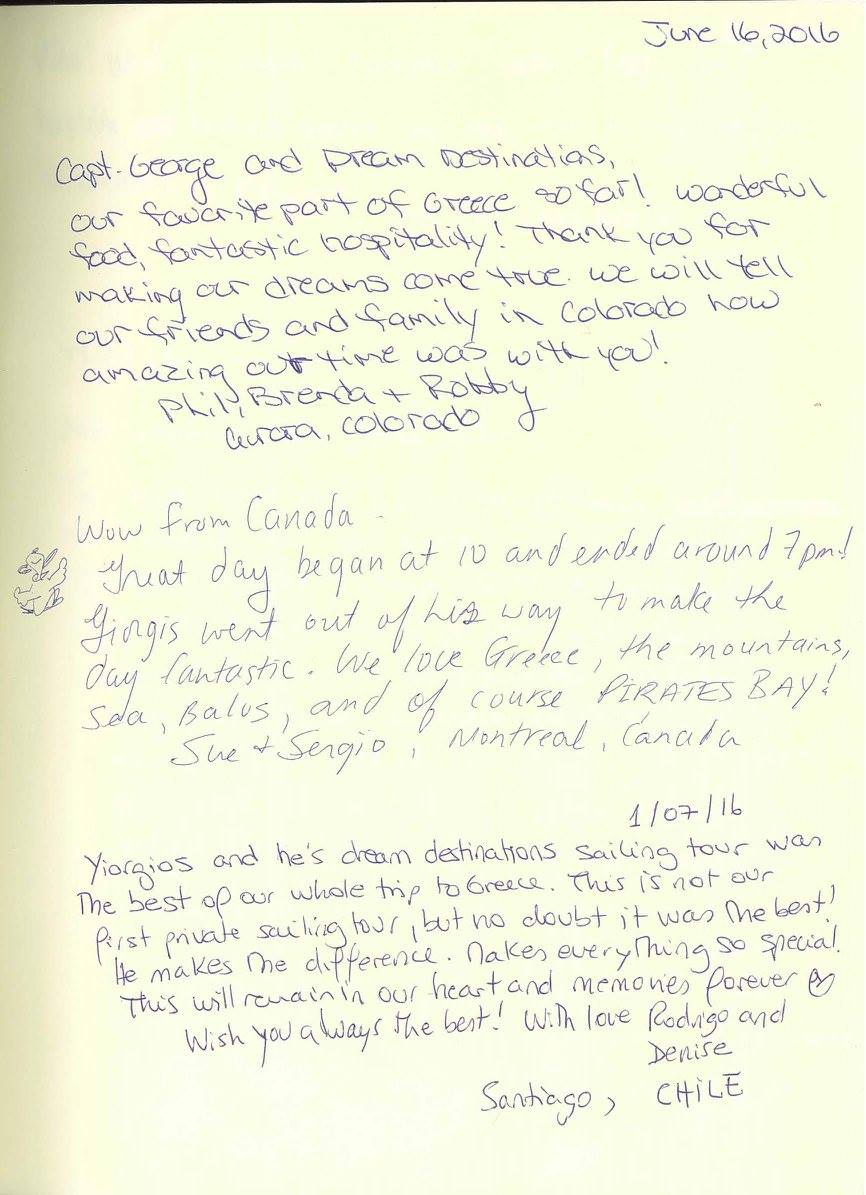 June 16, 2016
Capt. George and Dream Destinations,
our favorite part of Greece so far! wonderful
food, fantastic hospitality! Thank you for
making our dreams come true. we will tell
our friends and family in Colorado how
amazing our time was with you!
Phil, Brenda + Robby
Aurora, Colorado
Wow from Canada -
Great day began at 10 and ended around 7pm!
Giorgis went out of his way to make the
day fantastic. We love Greece, the mountains,
Sea, Balos, and of course PIRATES BAY!
Sue + Sergio, Montreal, Canada
1/07/16
Yiorgios and he's dream destinations sailing tour was
The best of our whole trip to Greece. This is not our
first private sailing tour, but no doubt it was the best!
He makes the difference. Makes everything so special.
This will remain in our heart and memories forever
Wish you always the best! With love Rodrigo and
Denise
Santiago, CHILE